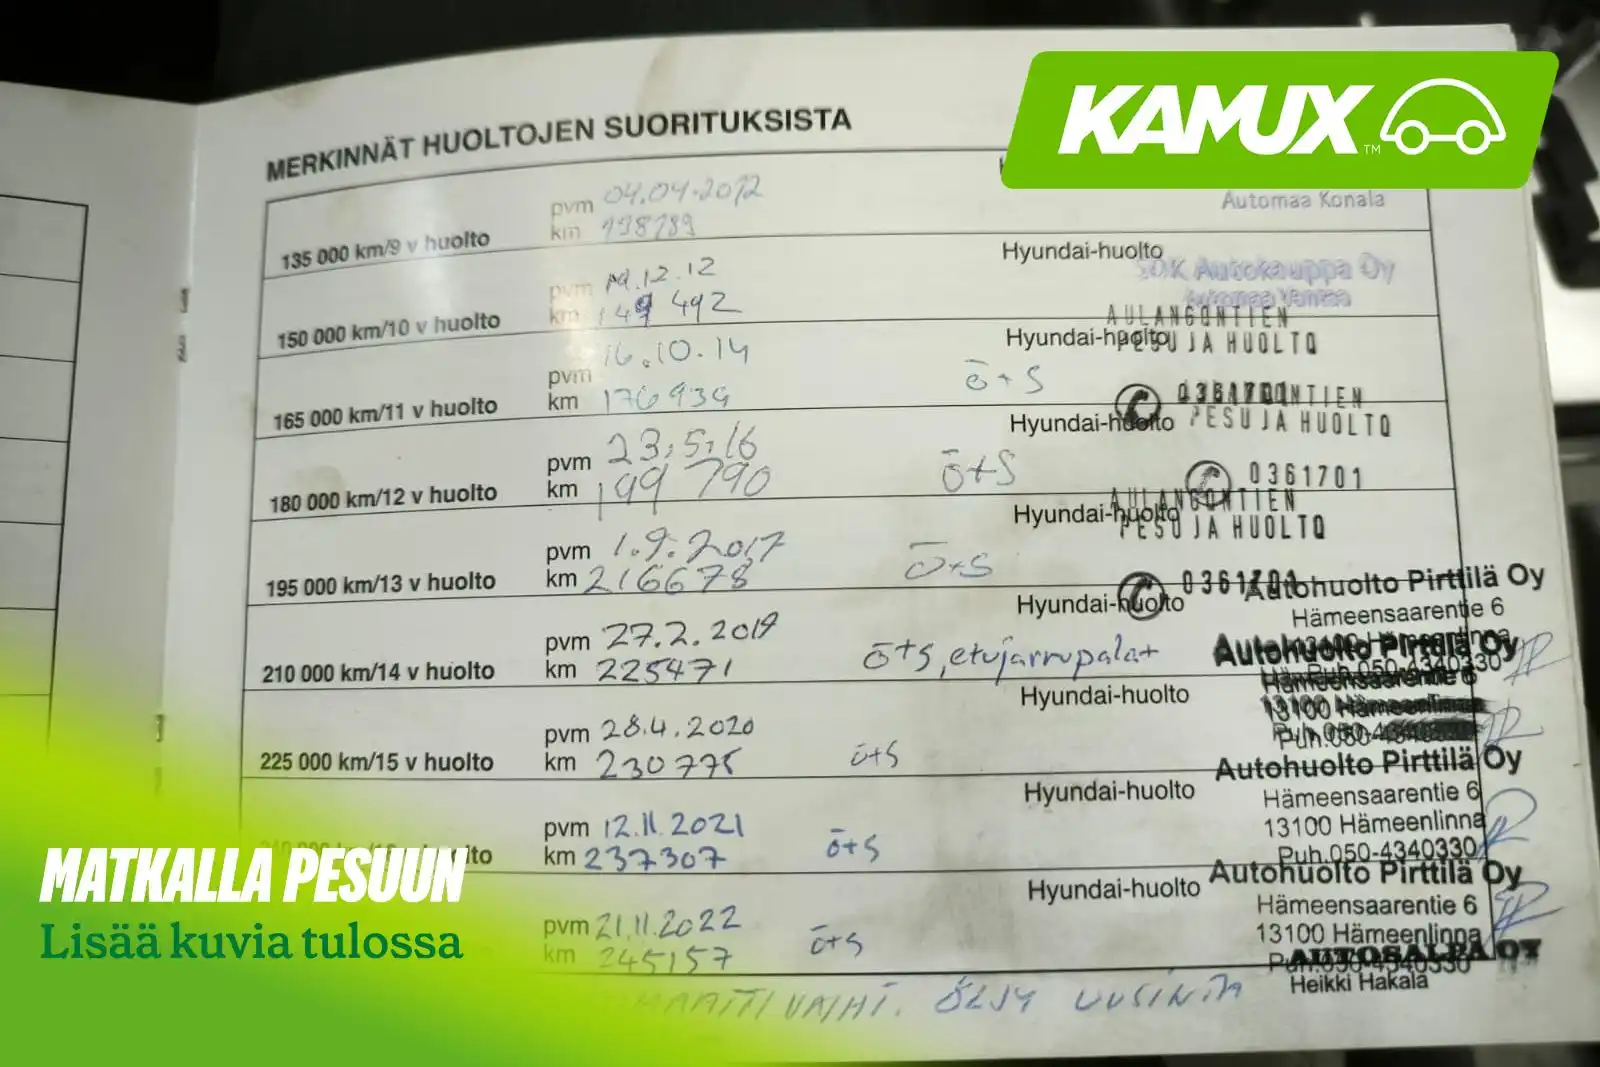 KAMUX
TM
MERKINNÄT HUOLTOJEN SUORITUKSISTA
135 000 km/9 v huolto
pvm 04.04.2012
km 138789
Automaa Konala
150 000 km/10 v huolto
pvm 19.12.12
km 149 492
Hyundai-huolto
SOK Autokauppa Oy
Automaa Vantaa
165 000 km/11 v huolto
pvm 16.10.14
km 176939
ö+S
Hyundai-huolto
AULANGONTIEN
PESU JA HUOLTO
0361701
180 000 km/12 v huolto
pvm 23.5.16
km 199 790
ö+S
Hyundai-huolto
PESU JA HUOLTO
0361701
195 000 km/13 v huolto
pvm 1.9.2017
km 216678
ö+S
Hyundai-huolto
AULANGONTIEN
PESU JA HUOLTO
0361701
210 000 km/14 v huolto
pvm 27.2.2019
km 225471
ö+S, etujarrupalat
Hyundai-huolto
Autohuolto Pirttilä Oy
Hämeensaarentie 6
13100 Hämeenlinna
Puh.050-4340330
225 000 km/15 v huolto
pvm 28.4.2020
km 230775
ö+S
Hyundai-huolto
Autohuolto Pirttilä Oy
Hämeensaarentie 6
13100 Hämeenlinna
Puh.050-4340330
pvm 12.11.2021
km 237307
ö+S
Hyundai-huolto
Autohuolto Pirttilä Oy
Hämeensaarentie 6
13100 Hämeenlinna
Puh.050-4340330
pvm 21.11.2022
km 245157
ö+S
Hyundai-huolto
Autohuolto Pirttilä Oy
Hämeensaarentie 6
13100 Hämeenlinna
Puh.050-4340330
AUTOSALPA OY
Heikki Hakala
ÖLJY UUSINTA
MATKALLA PESUUN
Lisää kuvia tulossa